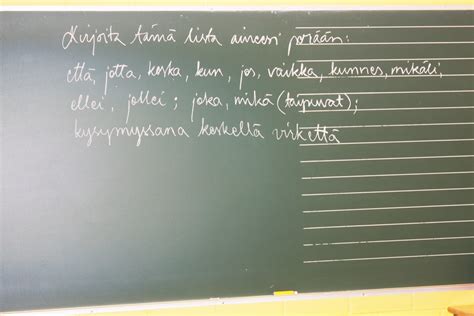 Kirjoita tämä lista aineesi perään:
että, jotta, koska, kun, jos, vaikka, kunnes, mikäli,
ellei, jollei; joka, mikä (taipuvat);
kysymyssana keskeltä virkettä